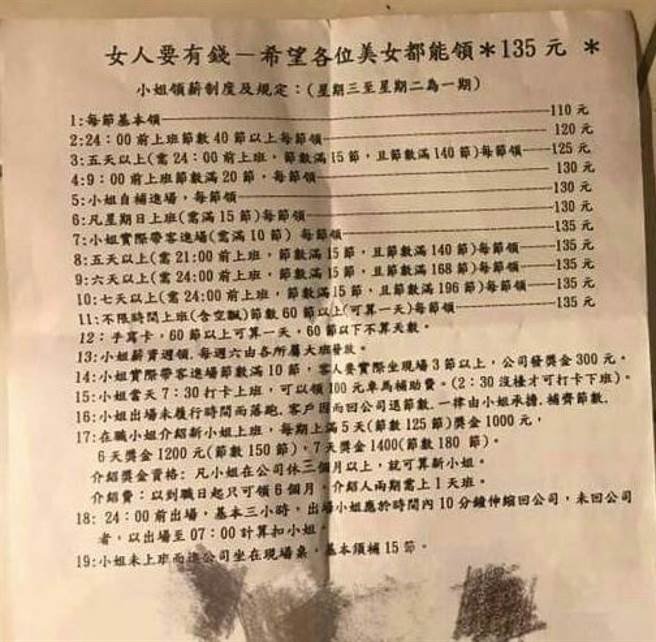 女人要有錢－希望各位美女都能領＊135元 ＊
小姐領薪制度及規定：(星期三至星期二為一期)
1:每節基本領------110元
2:24：00前上班節數40節以上每節領------120元
3:五天以上(需24：00前上班，節數滿15節，且節數滿140節)每節領------125元
4:9：00前上班節數滿20節，每節領------130元
5:小姐自補進場，每節領------130元
6:凡星期日上班(需滿15節)每節領------130元
7:小姐實際帶客進場(需滿10節) 每節領------135元
8:五天以上(需21:00前上班，節數滿15節，且節數滿140節)每節領------135元
9:六天以上(需24:00前上班，節數滿15節，且節數滿168節)每節領------135元
10:七天以上(需24:00前上班，節數滿15節，且節數滿196節)每節領------135元
11:不限時間上班(含空飄)節數60節以上(可算一天)每節領------135元
12：手寫卡，60節以上可算一天，60節以下不算天數。
13:小姐薪資週領.每週六由各所屬大班發放。
14:小姐實際帶客進場節數滿10節，客人要實際坐現場3節以上，公司發獎金300元。
15:小姐當天7：30打卡上班，可以領100元車馬補助費。(2：30沒檯才可打卡下班)。
16:小姐出場未履行時間而落跑.客戶因而回公司退節數.一律由小姐承擔.補齊節數.
17:在職小姐介紹新小姐上班，每期上滿5天(節數125節)獎金1000元，
6天獎金1200元(節數150節)，7天獎金1400(節數180 節)。
介紹獎金資格: 凡小姐在公司休三個月以上，就可算新小姐。
介紹費：以到職日起只可領6個月，介紹人兩期需上1天班。
18: 24：00前出場，基本三小時，出場小姐應於時間內10分鐘伸縮回公司，未回公司
者，以出場至07：00計算扣小姐。
19:小姐未上班而進公司坐在現場桌，基本領補15節。